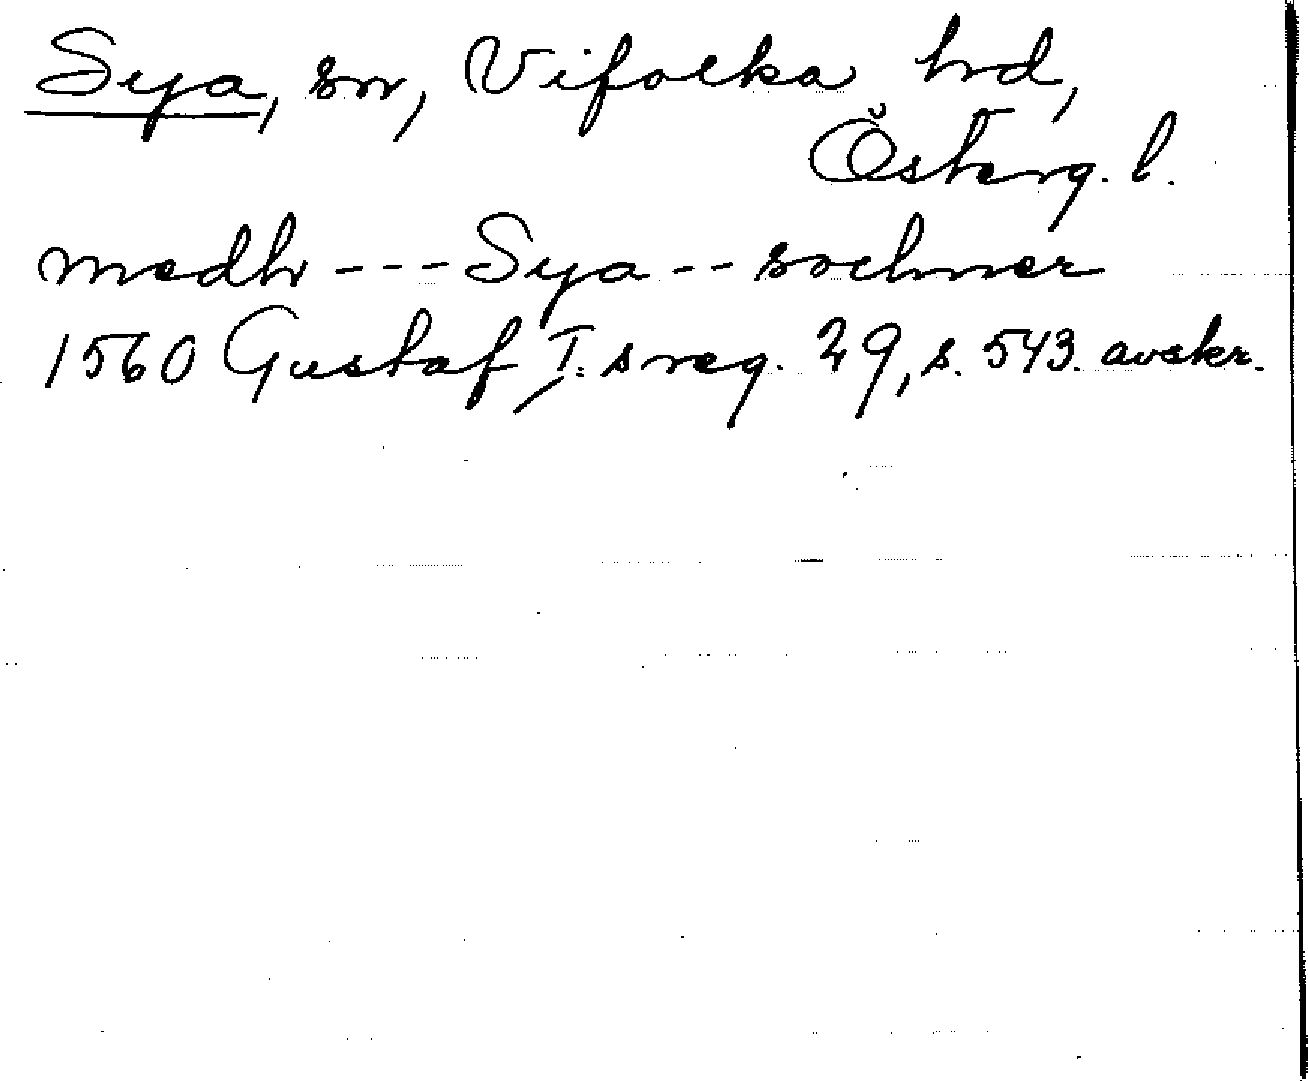 Sya, sn, Vifolka hrd,
Österg. l.
medh --- Sya -- sochner
1560 Gustaf I:s reg. 29, s. 543. avskr.